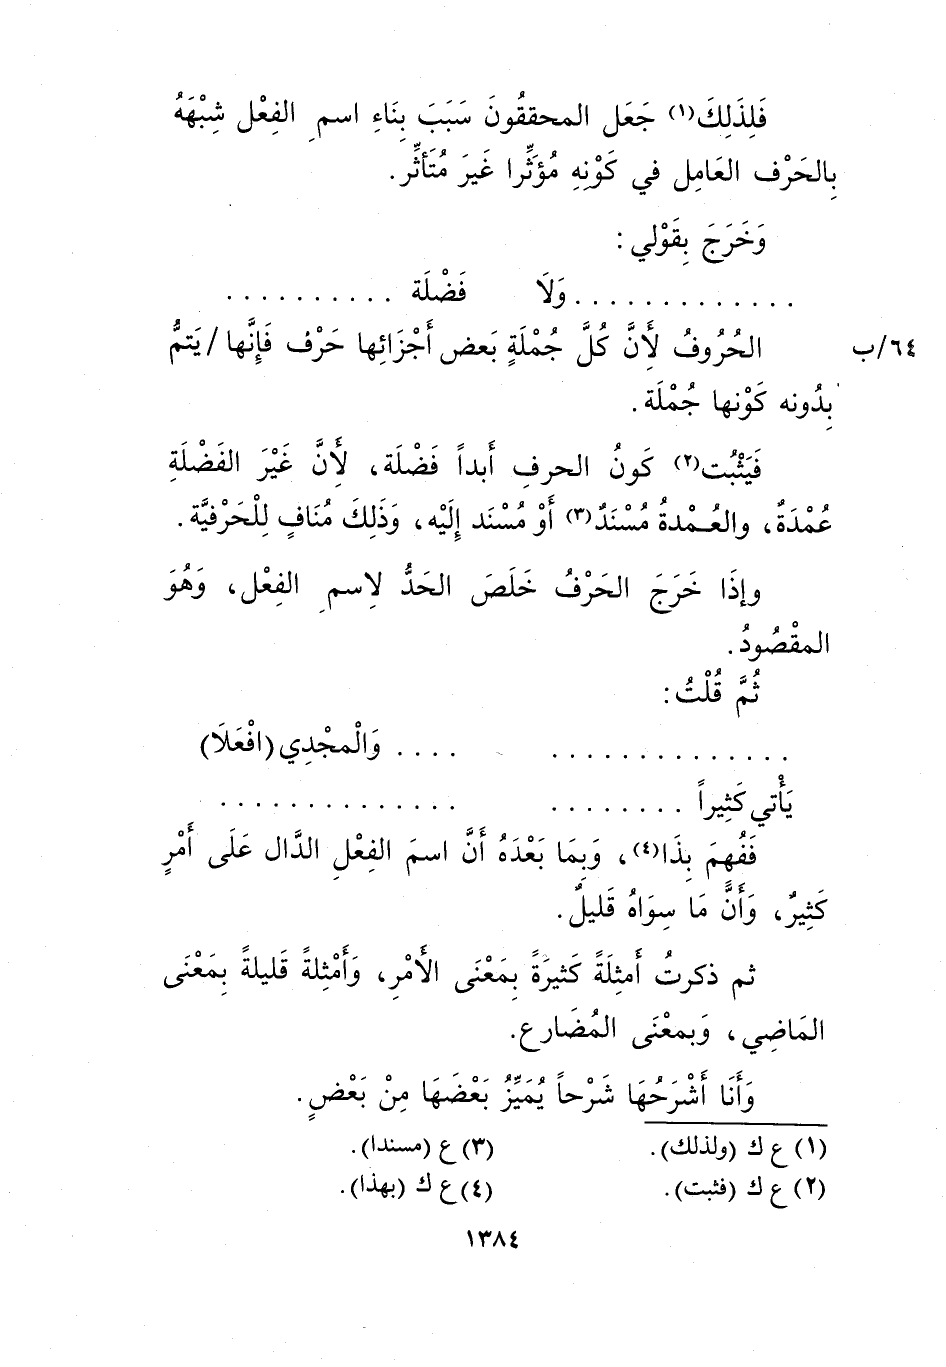 فَلِذَلِكَ(١) جَعَل المحققُونَ سَبَبَ بِنَاءِ اسمِ الفِعْل شِبْهَهُ
بِالحَرْف العَامِل في كَوْنِهِ مُؤَثِّرا غَيرَ مُتَأثِّر.
وَخَرَجَ بِقَوْلي:
............. وَلَا فَضْلَة ..........
الحُرُوفُ لأَنَّ كُلَّ جُمْلَةٍ بَعض أَجْزَائِها حَرْف فَإِنَّها /يَتمُّ ٦٤/ب
بِدُونه كَوْنها جُمْلَة.
فَيَثْبُت(٢) كَونُ الحرفِ أَبداً فَضْلَة، لأَنَّ غَيْرَ الفَضْلَةِ
عُمْدَةٌ، والعُمْدةُ مُسْنَدٌ(٣) أَوْ مُسْنَد إِلَيْه، وَذَلِكَ مُنَافٍ لِلْحَرْفيَّة.
وإذَا خَرَجَ الحَرْفُ خَلَصَ الحَدُّ لاِسمِ الفِعْل، وَهُوَ
المقْصُودُ.
ثُمَّ قُلْتُ:
.............. .... وَالْمجْدِي (افْعَلَا)
يَأْتي كَثِيراً ........ ..............
فَفُهِمَ بِذَا(٤)، وَبِمَا بَعْدَهُ أَنَّ اسمَ الفِعْلِ الدَّال عَلَى أَمْرٍ
كَثِيرٌ، وَأَنَّ مَا سِوَاهُ قَليلٌ.
ثم ذكرتُ أَمثِلَةً كَثيرَةً بِمَعْنَى الأَمْرِ، وَأَمْثِلةً قَليلةً بِمَعْنَى
المَاضِي، وَبمعْنَى المُضَارع.
وَأَنَا أَشْرَحُهَا شَرْحاً يُمَيِّزُ بَعْضَهَا مِنْ بَعْضٍ.
(١) ع ك (ولذلك). (٣) ع (مسندا).
(٢) ع ك (فثبت). (٤) ع ك (بهذا).
١٣٨٤